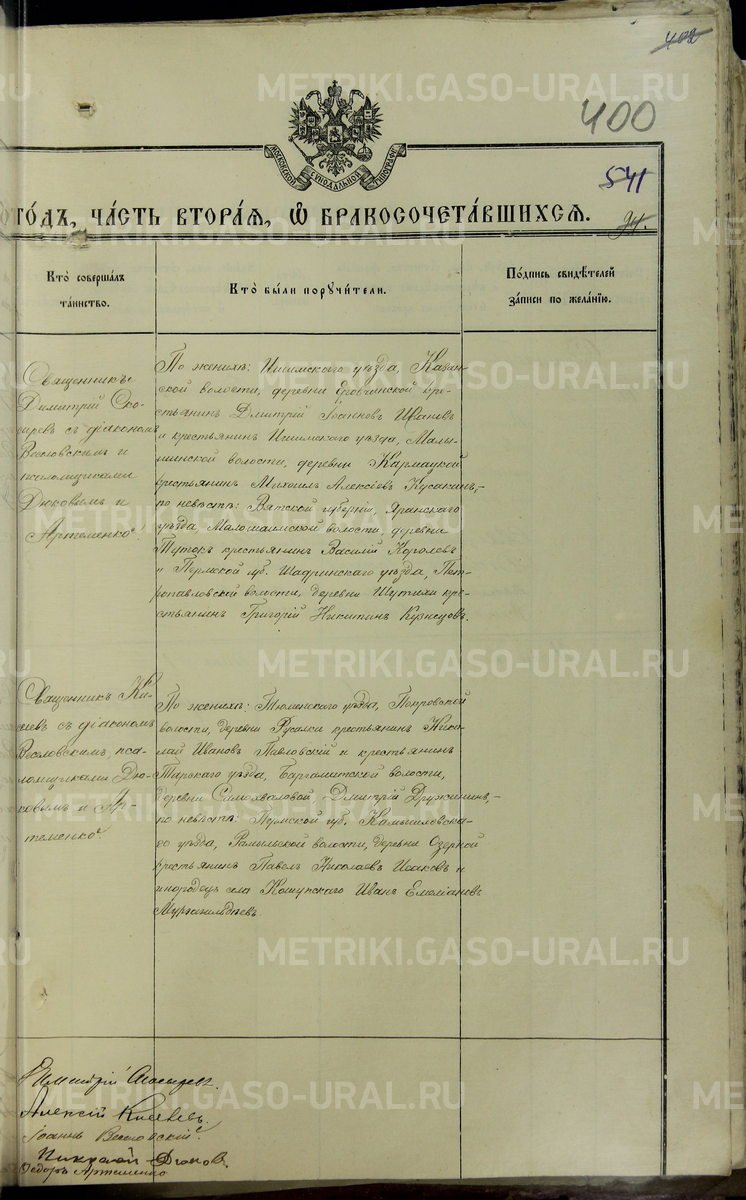 402
METRIKI.GASO-URAL.RU
400
МОСКОВСКОЙ СѴНОДАЛЬНОЙ ТИПОГРАФ
541
го́дъ, ча́сть втора́ѧ, ѡ҆ бракосочета́вшихсѧ.
94.
Кто̀ соверша́лъ
та́инство.
Кто̀ бы́ли порꙋчи́тели.
По́дпись свидѣ́телей
за́писи по жела́нїю.
Священникъ
Димитрій Ско-
сыревъ съ діакономъ
Веселовскимъ и
псаломщиками
Дюковымъ и
Артеменко.
По женихѣ: Ишимскаго уѣзда, Казан-
ской волости, деревни кре-
стьянинъ Дмитрій Іоанновъ Ивановъ
и крестьянинъ Ишимскаго уѣзда, Малы-
шинской волости, деревни Кармацкой
крестьянинъ Михаилъ Алексіевъ Кусакинъ,-
по невѣстѣ: Вятской губерніи, Яранскаго
уѣзда, волости, деревни
крестьянинъ Василій Королевъ
и Пермской губ. Шадринскаго уѣзда, Пет-
ропавловской волости, деревни Шутихи кре-
стьянинъ Григорій Никитинъ Кузнецовъ.
Священникъ Ки-
селевъ съ діакономъ
Веселовскимъ, пса-
ломщиками Дю-
ковымъ и Ар-
теменко.
По женихѣ: Тюменскаго уѣзда, Покровской
волости, деревни Русалки крестьянинъ Нико-
лай Ивановъ Павловскій и крестьянинъ
Тарскаго уѣзда, Бергаматской волости,
деревни Самохваловой Дмитрій Дружининъ,-
по невѣстѣ: Пермской губ. Камышловска-
го уѣзда, волости, деревни Озерной
крестьянинъ Павелъ Николаевъ Исаковъ и
инородецъ села Кошукскаго Иванъ Емеліановъ
Димитрій Скосыревъ.
Алексій Киселевъ.
Іоаннъ Веселовскій.
Николай Дюковъ.
Ѳедоръ Артеменко